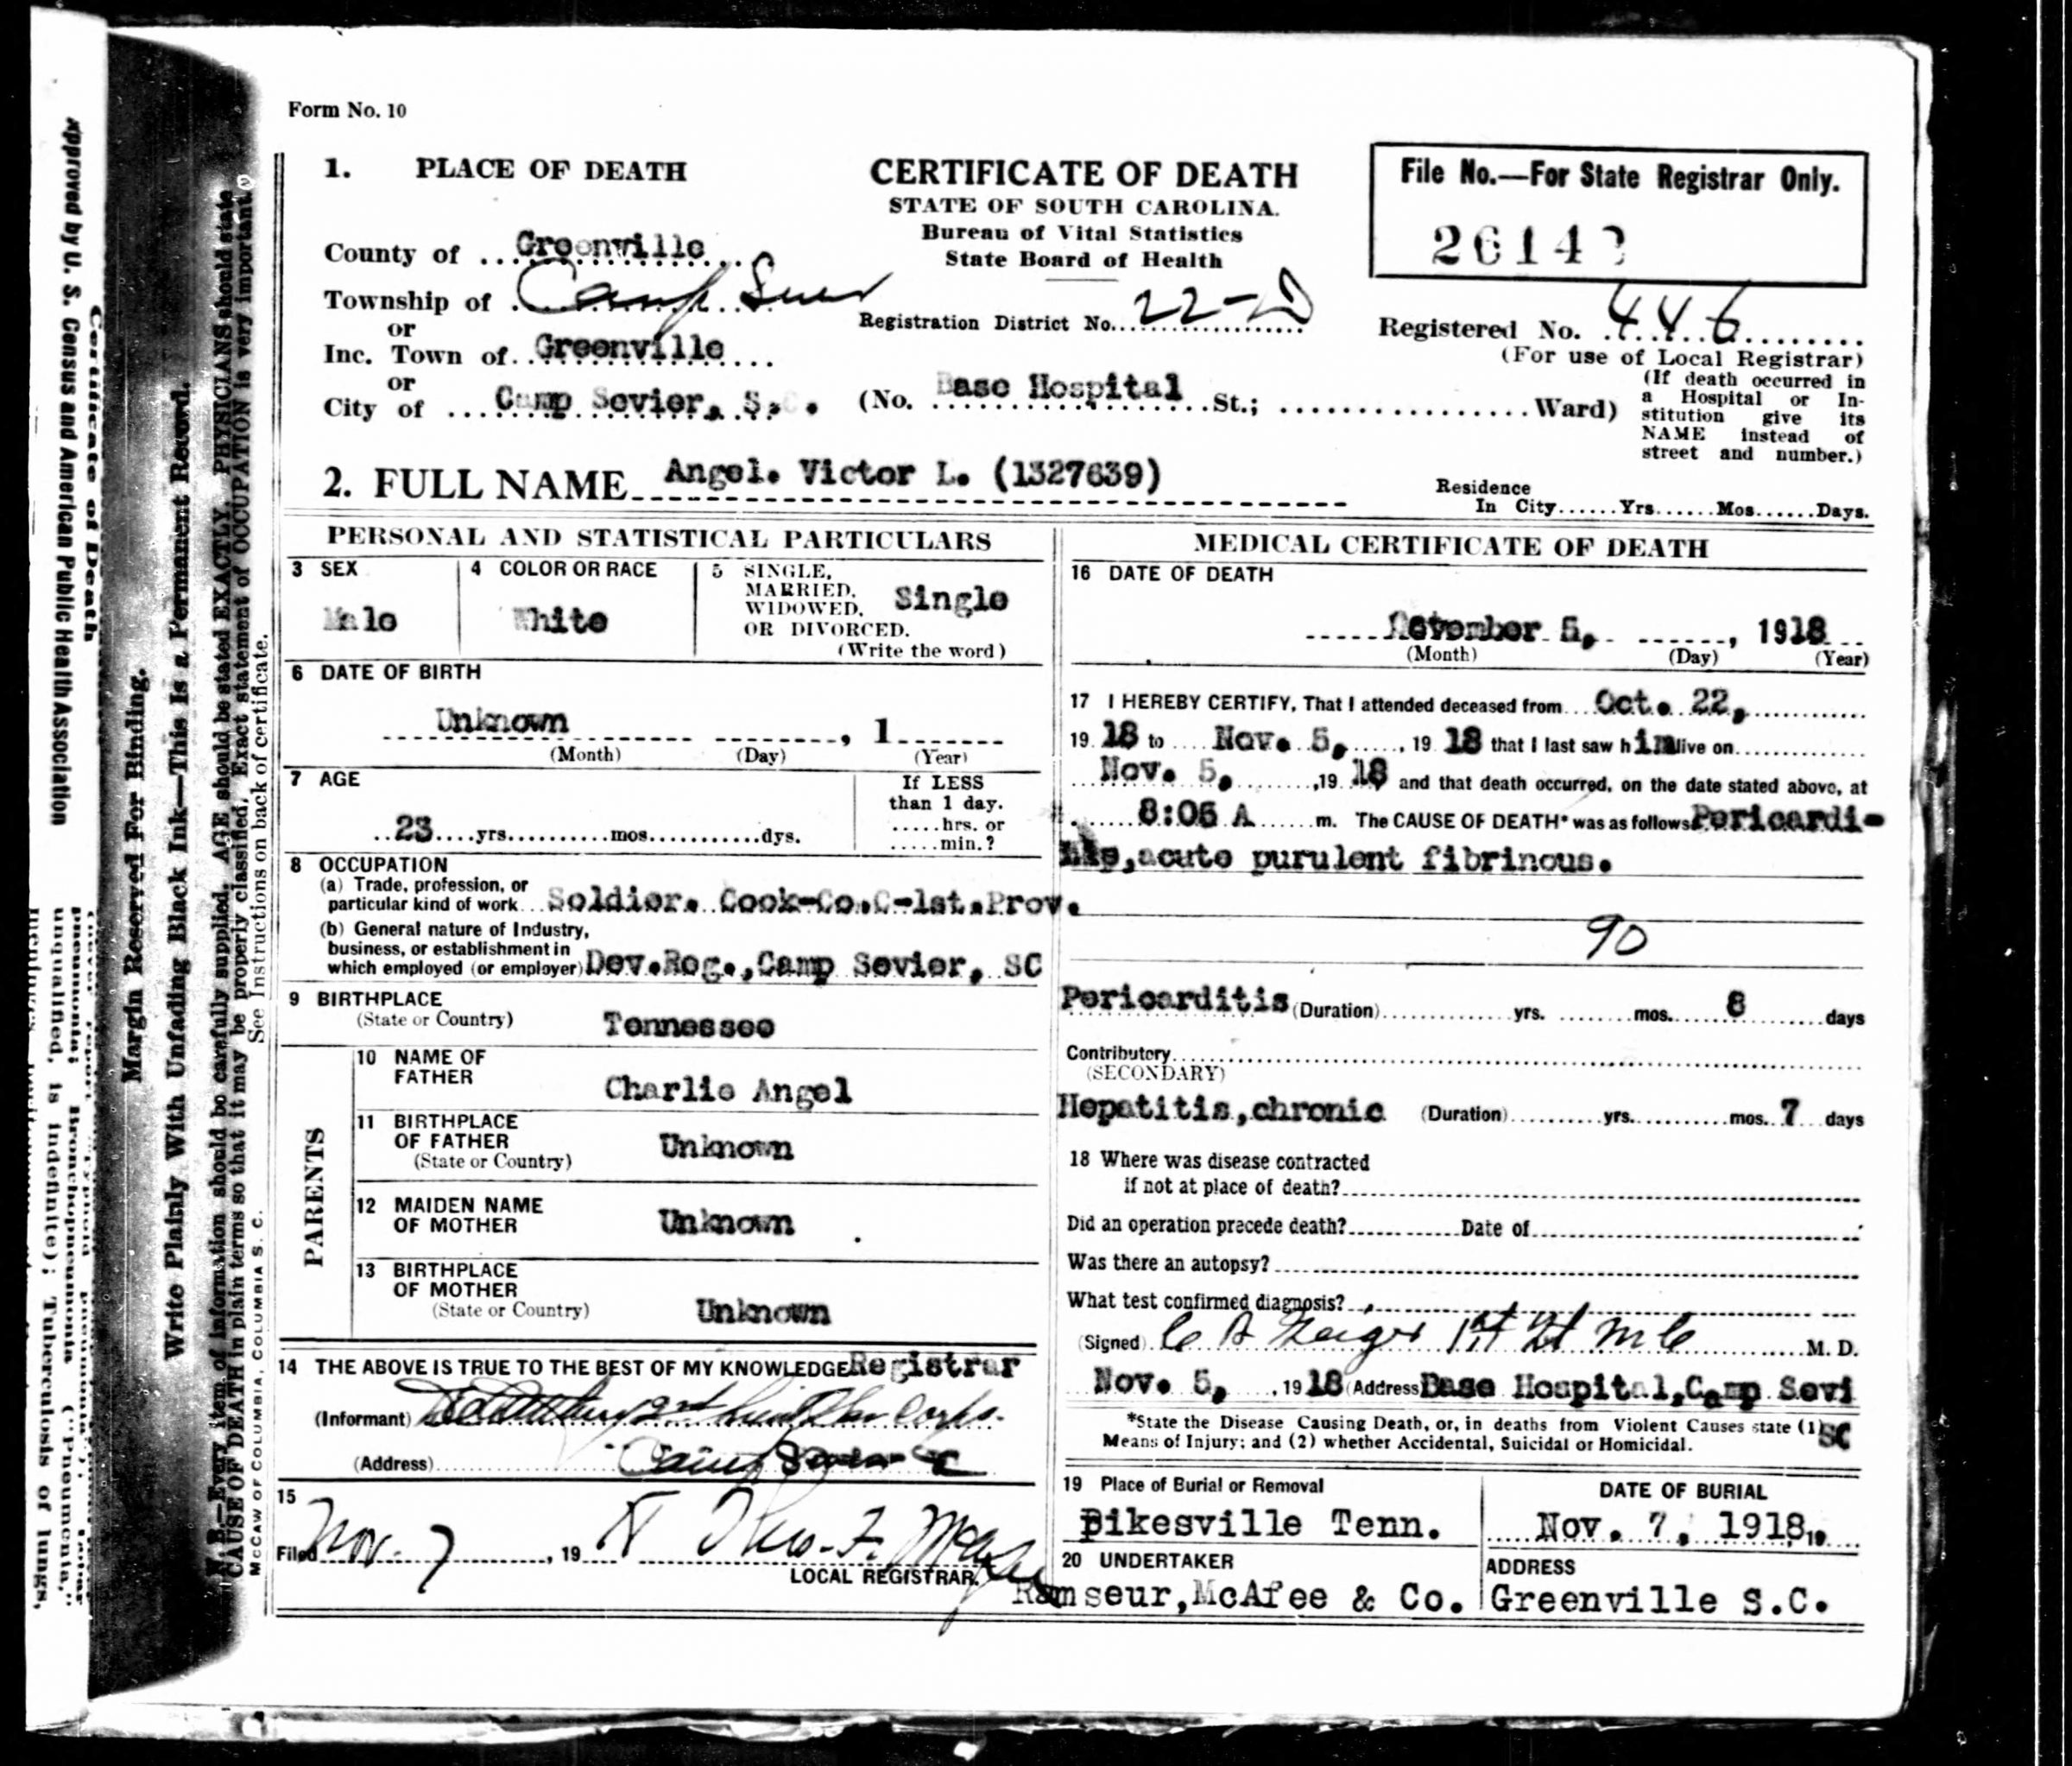 Form No. 10
1. PLACE OF DEATH
CERTIFICATE OF DEATH
STATE OF SOUTH CAROLINA.
Bureau of Vital Statistics
State Board of Health
File No.—For State Registrar Only.
2614
County of Greenville
Township of Camp
or
Registration District No. 22-D
Registered No. 446
(For use of Local Registrar)
Inc. Town of Greenville
or
City of Camp Sevier, S. C.
(No. Base Hospital St.; Ward)
(If death occurred in
a Hospital or In-
stitution give its
NAME instead of
street and number.)
2. FULL NAME Angel. Victor L. (1327639)
Residence
In City......Yrs......Mos......Days.
PERSONAL AND STATISTICAL PARTICULARS
3 SEX
Male
4 COLOR OR RACE
White
5 SINGLE,
MARRIED,
WIDOWED,
OR DIVORCED.
(Write the word)
Single
6 DATE OF BIRTH
Unknown , 1
(Month) (Day) (Year)
7 AGE
23 yrs. mos. dys.
If LESS
than 1 day.
.....hrs. or
.....min.?
8 OCCUPATION
(a) Trade, profession, or
particular kind of work Soldier. Cook-Co.C-1st.Prov.
(b) General nature of Industry,
business, or establishment in
which employed (or employer) Dev.Reg.,Camp Sevier, SC
9 BIRTHPLACE
(State or Country) Tennessee
PARENTS
10 NAME OF
FATHER
Charlie Angel
11 BIRTHPLACE
OF FATHER
(State or Country)
Unknown
12 MAIDEN NAME
OF MOTHER
Unknown
13 BIRTHPLACE
OF MOTHER
(State or Country)
Unknown
14 THE ABOVE IS TRUE TO THE BEST OF MY KNOWLEDGE Registrar
(Informant) Corps.
(Address) Camp
15
Filed Nov. 7, 19 18
LOCAL REGISTRAR.
MEDICAL CERTIFICATE OF DEATH
16 DATE OF DEATH
November 5, , 1918
(Month) (Day) (Year)
17 I HEREBY CERTIFY, That I attended deceased from Oct. 22,
19 18 to Nov. 5, , 19 18 that I last saw h im alive on
Nov. 5, ,19 18 and that death occurred, on the date stated above, at
8:05 A m. The CAUSE OF DEATH* was as follows: Pericardi-
tis,acute purulent fibrinous.
90
Pericarditis (Duration) yrs. mos. 8 days
Contributory
(SECONDARY)
Hepatitis,chronic (Duration) yrs. mos. 7 days
18 Where was disease contracted
if not at place of death?
Did an operation precede death? Date of
Was there an autopsy?
What test confirmed diagnosis?
(Signed) 1st Lt M C M. D.
Nov. 5, , 19 18 (Address Base Hospital,Camp Sevi
SC
*State the Disease Causing Death, or, in deaths from Violent Causes state (1)
Means of Injury; and (2) whether Accidental, Suicidal or Homicidal.
19 Place of Burial or Removal
Pikesville Tenn.
DATE OF BURIAL
Nov. 7, 1918,
20 UNDERTAKER
Ramseur,McAfee & Co.
ADDRESS
Greenville S.C.
Margin Reserved For Binding.
Write Plainly With Unfading Black Ink—This Is a Permanent Record.
N. B.—Every item of information should be carefully supplied. AGE should be stated EXACTLY. PHYSICIANS should state
CAUSE OF DEATH in plain terms so that it may be properly classified. Exact statement of OCCUPATION is very important.
See Instructions on back of certificate.
McCAW OF COLUMBIA, COLUMBIA S. C.
Certificate of Death
Approved by U. S. Census and American Public Health Association
pneumonia; Bronchopneumonia ("Pneumonia,"
unqualified, is indefinite); Tuberculosis of lungs,